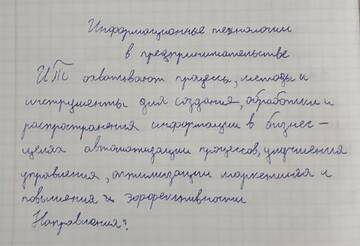 Информационные технологии
в предпринимательстве
ИТП охватывают процессы, методы и
инструменты для создания, обработки и
распространения информации в бизнес –
целях автоматизации процессов, улучшения
управления, оптимизации маркетинга и
повышения их эффективности
Направления: